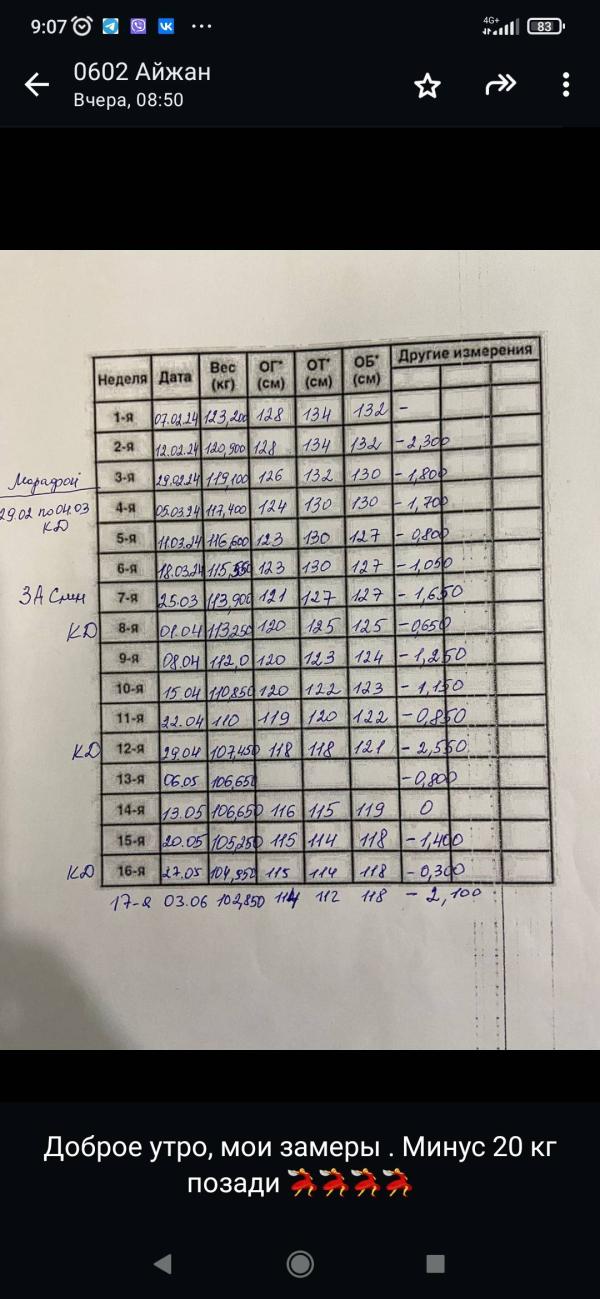 9:07 4G+ 83
0602 Айжан
Вчера, 08:50
Неделя Дата Вес (кг) ОГ* (см) ОТ* (см) ОБ* (см) Другие измерения
1-я 07.02.24 123,200 128 134 132 -
2-я 12.02.24 120,900 128 134 132 -2,300
3-я 29.02.24 119,100 126 132 130 -1,800
Марафон
4-я 05.03.24 117,400 124 130 130 -1,700
29.02 по 04.03
КД
5-я 11.03.24 116,600 123 130 127 -0,800
6-я 18.03.24 115,550 123 130 127 -1,050
7-я 25.03 113,900 121 127 127 -1,650
КД 8-я 01.04 113,250 120 125 125 -0,650
9-я 08.04 112,0 120 123 124 -1,250
10-я 15.04 110,850 120 122 123 -1,150
11-я 22.04 110 119 120 122 -0,850
КД 12-я 29.04 107,450 118 118 121 -2,550
13-я 06.05 106,650 -0,800
14-я 13.05 106,650 116 115 119 0
15-я 20.05 105,250 115 114 118 -1,400
КД 16-я 27.05 104,950 115 114 118 -0,300
17-я 03.06 102,850 114 112 118 -2,100
Доброе утро, мои замеры . Минус 20 кг
позади 💃💃💃💃